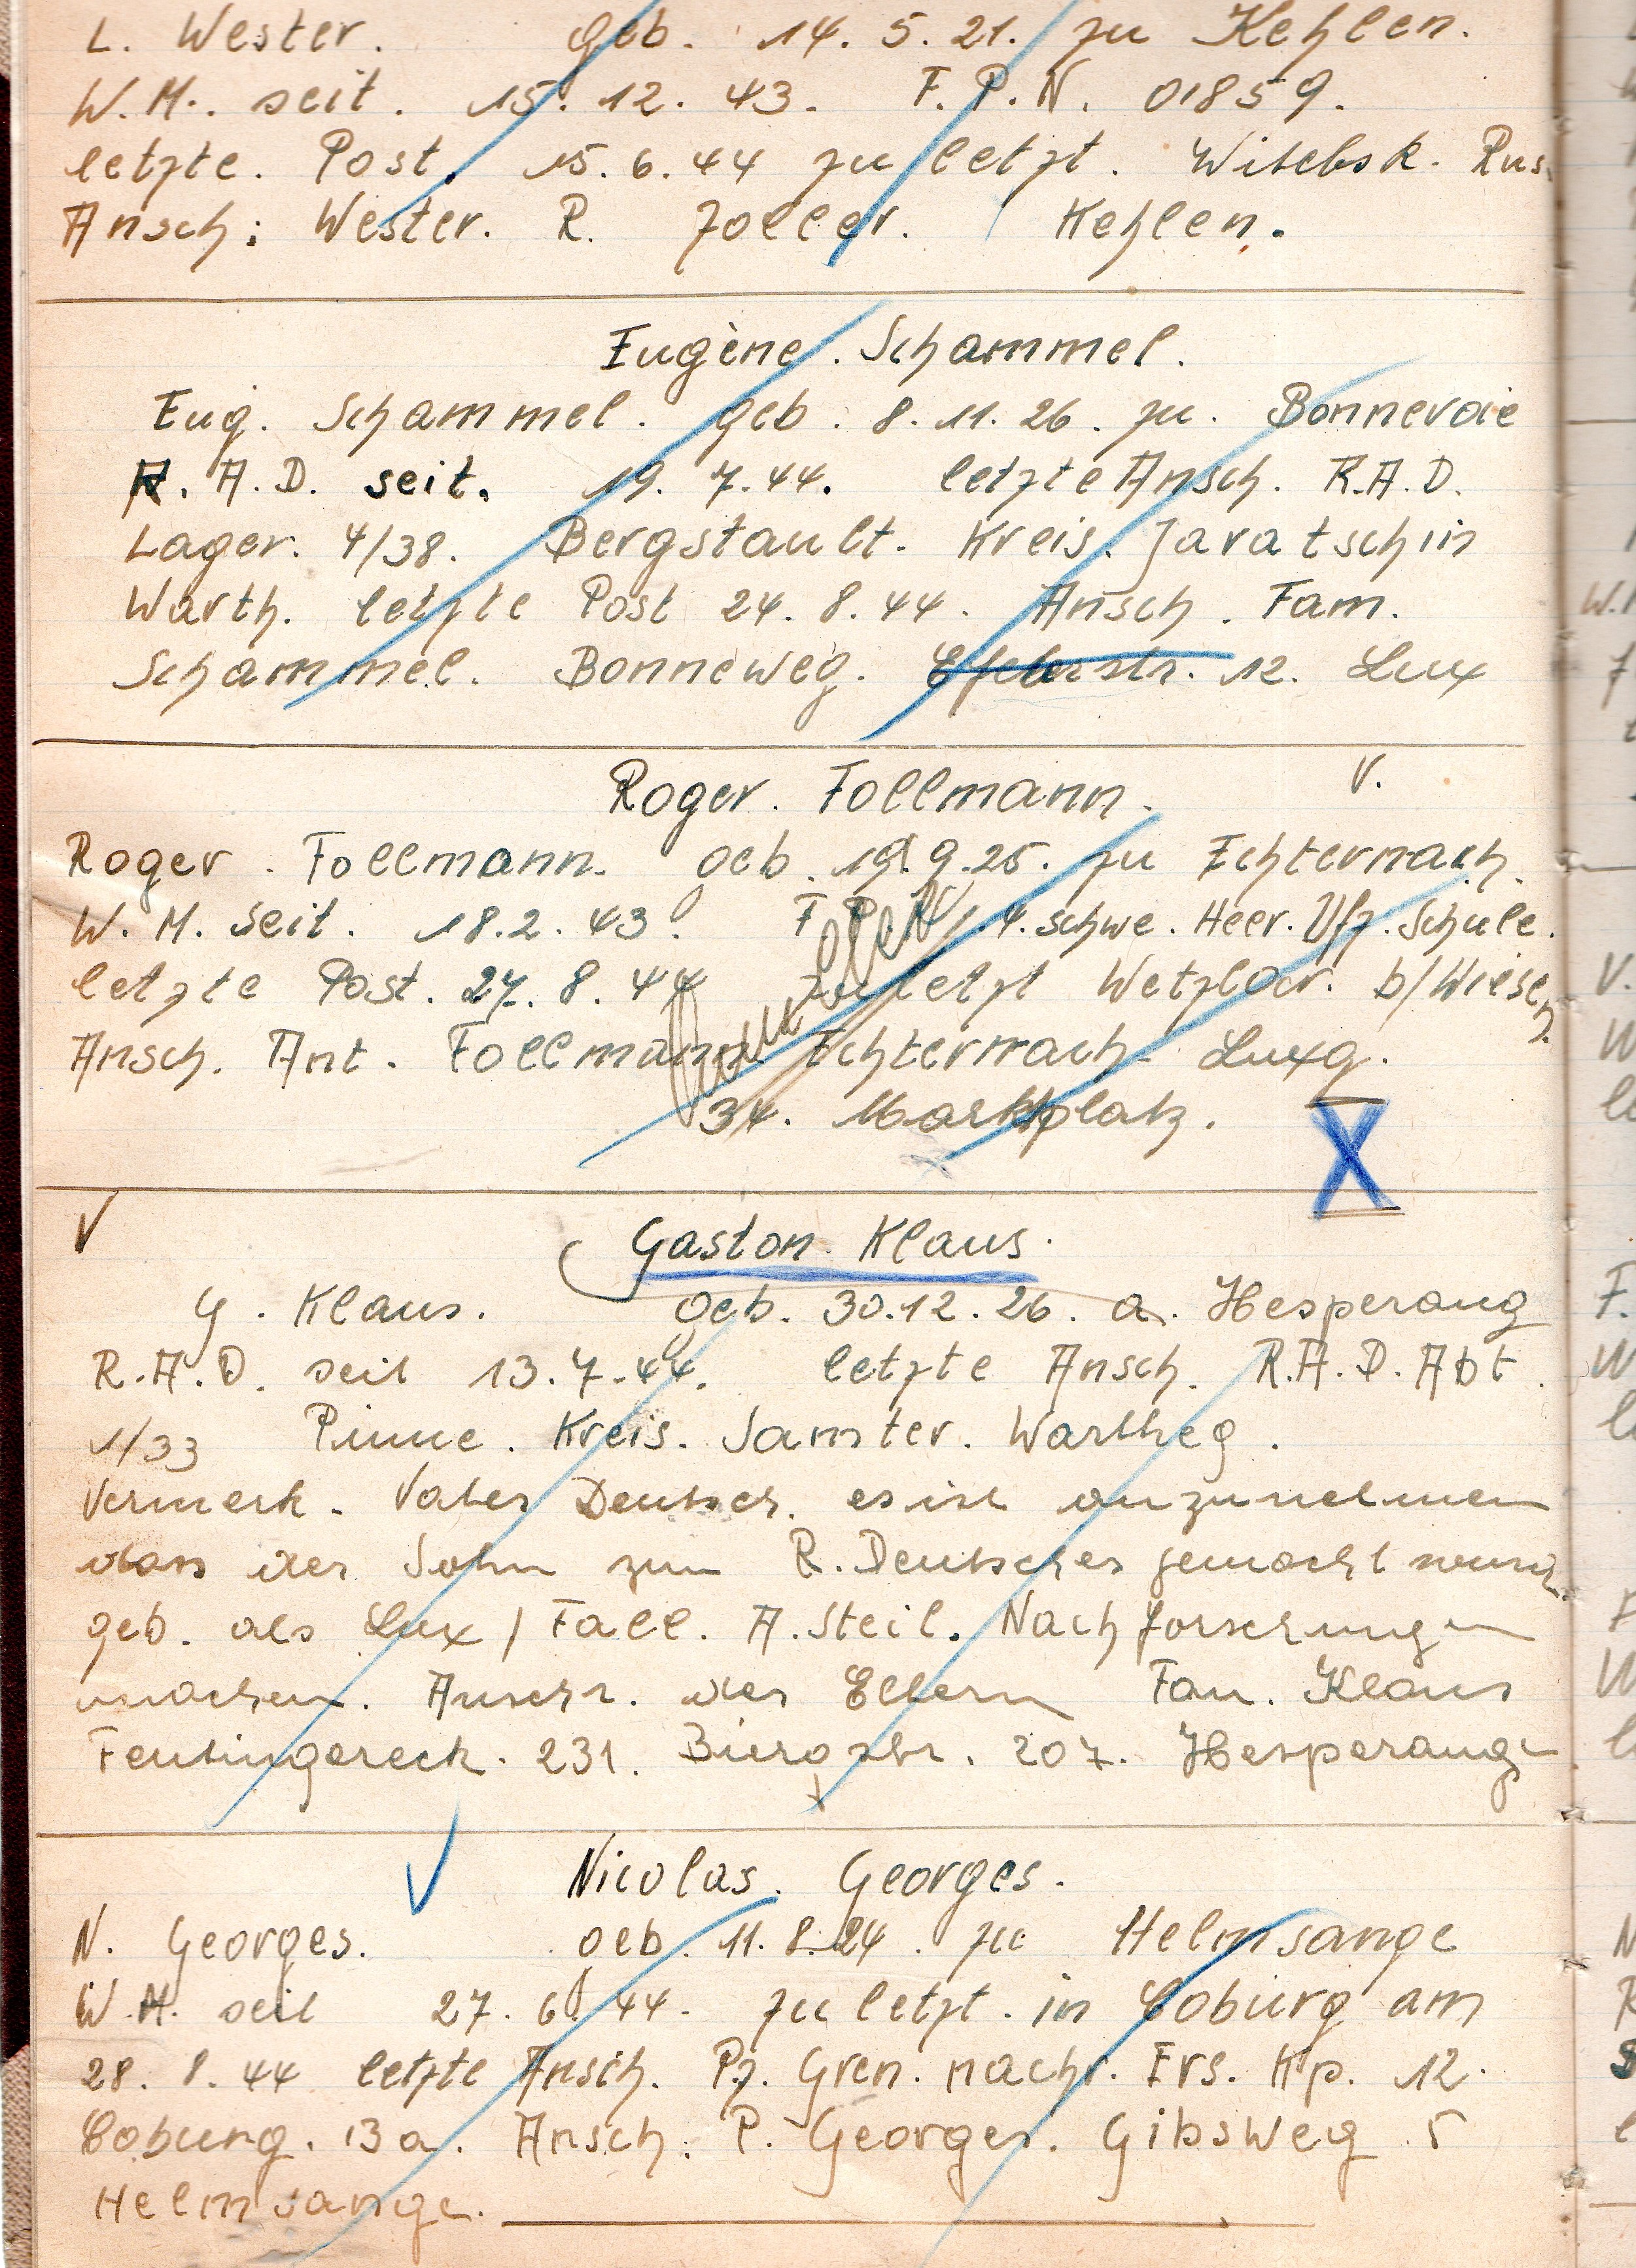 L. Wester. geb. 14. 5. 21. zu Kehlen.
W.M. seit. 15. 12. 43. F.P.N. 01859.
letzte. Post. 15. 6. 44 zu letzt. Witebsk. Rus.
Ansch: Wester. R. Zoller. Kehlen.
Eugène. Schammel.
Eug. Schammel. geb. 8. 11. 26. zu. Bonnevoie
R. A. D. seit. 19. 7. 44. letzte Ansch. R.A.D.
Lager. 4/38. Bergstault. Kreis. Jaratschin
Warth. letzte Post 24. 8. 44. Ansch. Fam.
Schammel. Bonneweg. 12. Lux
Roger. Follmann. V.
Roger. Follmann. geb. 19. 9. 25. zu Echternach.
W. M. seit. 18. 2. 43. F.P.N. 4. schwe. Heer. Ufz. Schule.
letzte Post. 27. 8. 44 zu letzt Wetzlar. b/Wiesen.
Ansch. Ant. Follmann Echternach Luxg.
34. Marktplatz.
X
V
Gaston. Klaus.
G. Klaus. geb. 30. 12. 26. a. Hesperang
R.A.D. seit 13. 7. 44. letzte Ansch. R.A.D. Abt.
1/33 Pinne. Kreis. Samter. Wartheg.
Vermerk. Vater Deutscher. es ist anzunehmen
dass der Sohn zum R. Deutscher gemacht wurde
geb. als Lux / Fall. A. Steil. Nachforschungen
machen. Anschr. der Eltern Fam. Klaus
Fentingereck. 231. 207. Hesperange
V
Nicolas. Georges.
N. Georges. geb. 11. 8. 24. zu Helmsange
W.M. seit 27. 6. 44. zu letzt. in Coburg am
28. 8. 44 letzte Ansch. Pz. Gren. nachr. Ers. Kp. 12.
Coburg. 13a. Ansch: P. Georges. Gibsweg. 5
Helmsange.